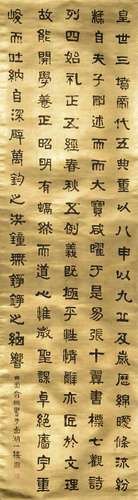 皇世三墳帝代五典重以八申以九丘歲歷綿曖條流紛
糅自夫子刪述而大寶咸曜于是易張十翼書標七觀詩
列四始礼正五經春秋五例義既極乎性情辭亦匠於文理
故能開學養正昭明有融然而道心惟微聖謨卓絕牆宇重
峻而吐納自深譬萬鈞之洪鐘無錚錚之細響